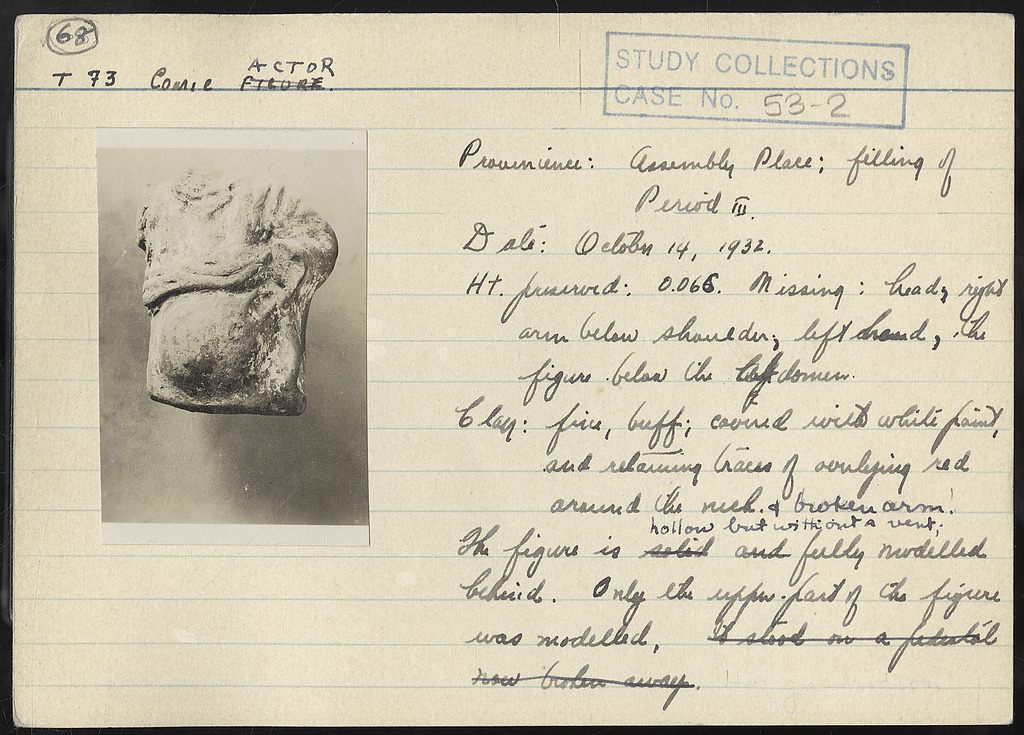 68
T 73 Comic FIGURE. ACTOR
STUDY COLLECTIONS
CASE No. 53-2
Provenience: Assembly Place; filling of
Period III.
Date: October 14, 1932.
Ht. preserved: 0.066. Missing: head; right
arm below shoulder; left hand, the
figure below the abdomen.
Clay: fine, buff; covered with white paint,
and retaining traces of overlying red
around the neck. & broken arm.
hollow but without a vent;
The figure is solid and fully modelled
behind. Only the upper part of the figure
was modelled, It stood on a pedestal
now broken away.